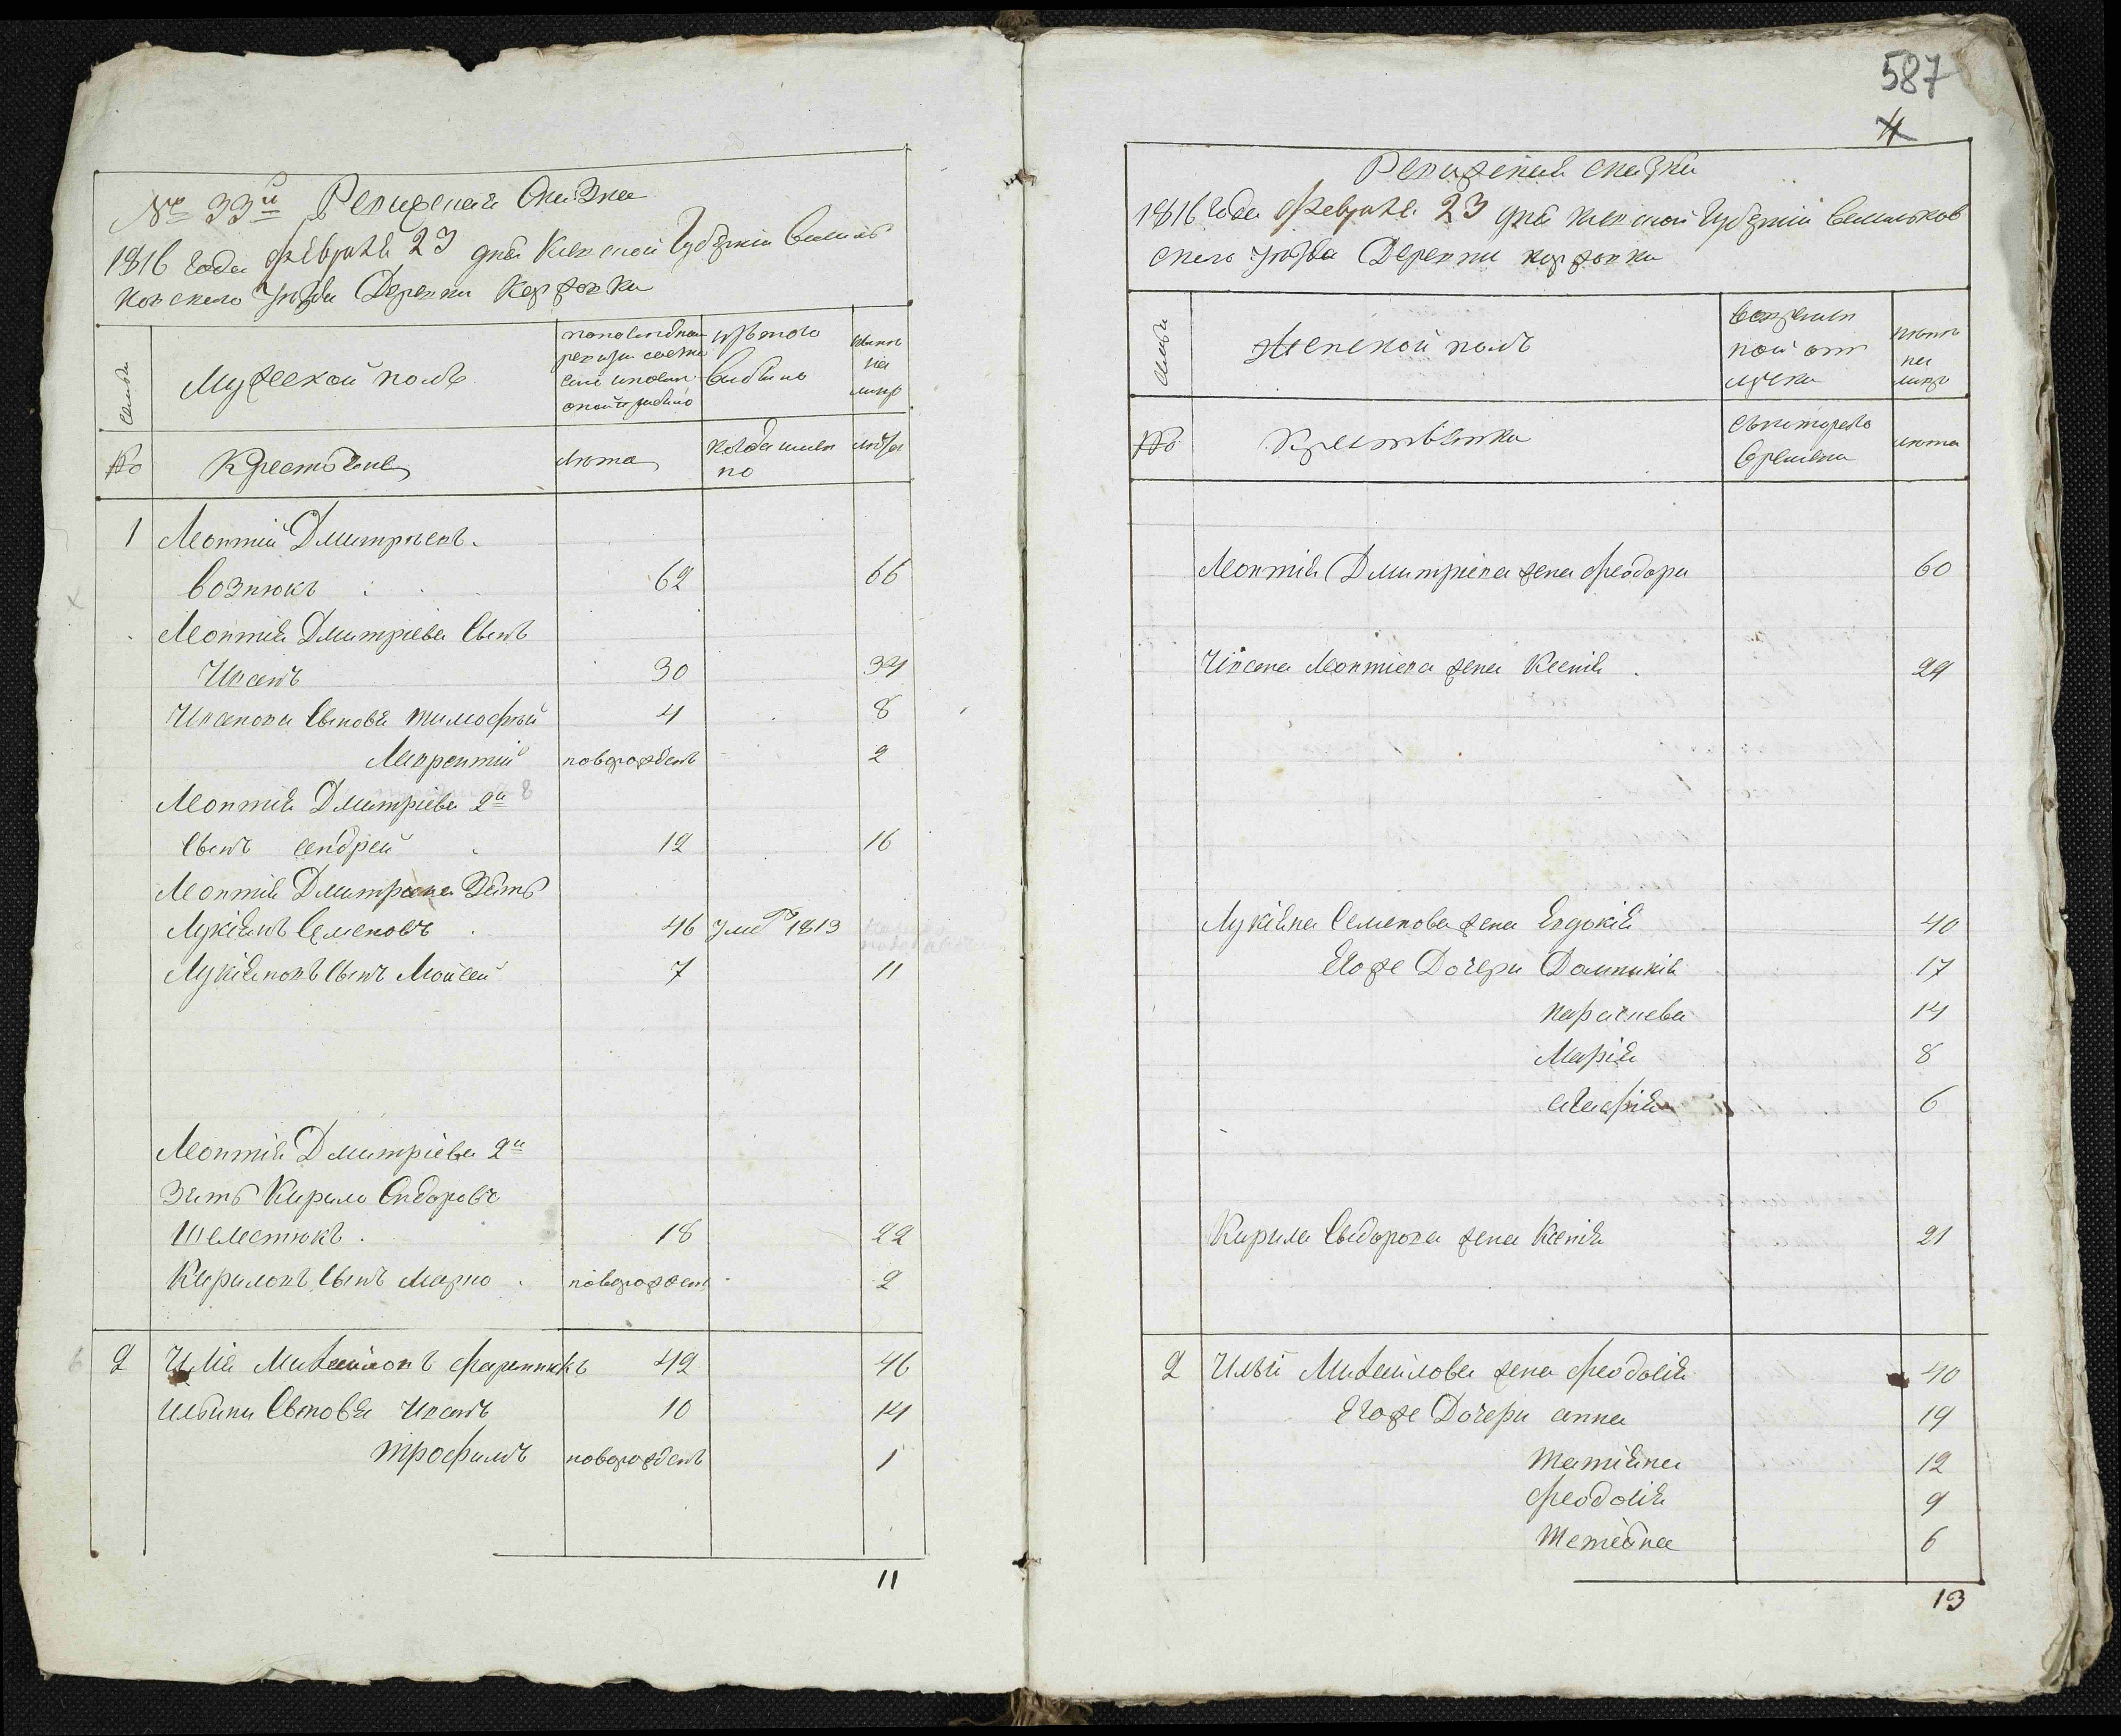 № 33й Ревизская Сказка
1816 года февраля 23 дня Киевской Губерніи Василь
ковскаго Уезда Деревни
Семьи
Мужеской полъ
изътого
выбыло
нынѣ
на
лицо
№
Крестьяне
лѣта
когда имен
но
лѣта
1 Леонтій Дмитріевъ
Вознюкъ 62 66
Леонтія Дмитріева Сынъ
Иванъ 30 34
Ивановы Сыновья тимофѣй 4 8
Лаврентій новорожденъ 2
Леонтія Дмитріева 2й
Сынъ андрей 12 16
Леонтія Дмитріева Зять
Лукіянъ Семеновъ 46 Уме 1813
Лукіяновъ Сынъ Мойсей 7 11
Леонтія Дмитріева 2й
Зять Кирило Сидоровъ
Шелестюкъ 18 22
Кириловъ Сынъ Марко новорожден 2
2 Илія Михайловъ 42 46
Ильины Сыновья Иванъ 10 14
трофимъ новорожденъ 1
11
587
4
Ревизская сказка
1816 года февраля 23 дня киевской Губерніи Васильков
скаго Уезда Деревни
Семьи
Женской полъ
времен
ной от
лучки
нынѣ
на
лицо
№
Крестьянки
Съкотораго
времени
лѣта
Леонтія Дмитріева жена феодора 60
Ивана Леонтиева жена Ксенія 29
Лукіяна Семенова жена Евдокія 40
Егоже Дочери Домникія 17
параскева 14
Марія 8
агафія 6
Кирила Сыдорова жена Ксенія 21
2 Ильи Михайлова жена феодосія 40
Егоже Дочери анна 19
татіяна 12
феодосія 9
6
13